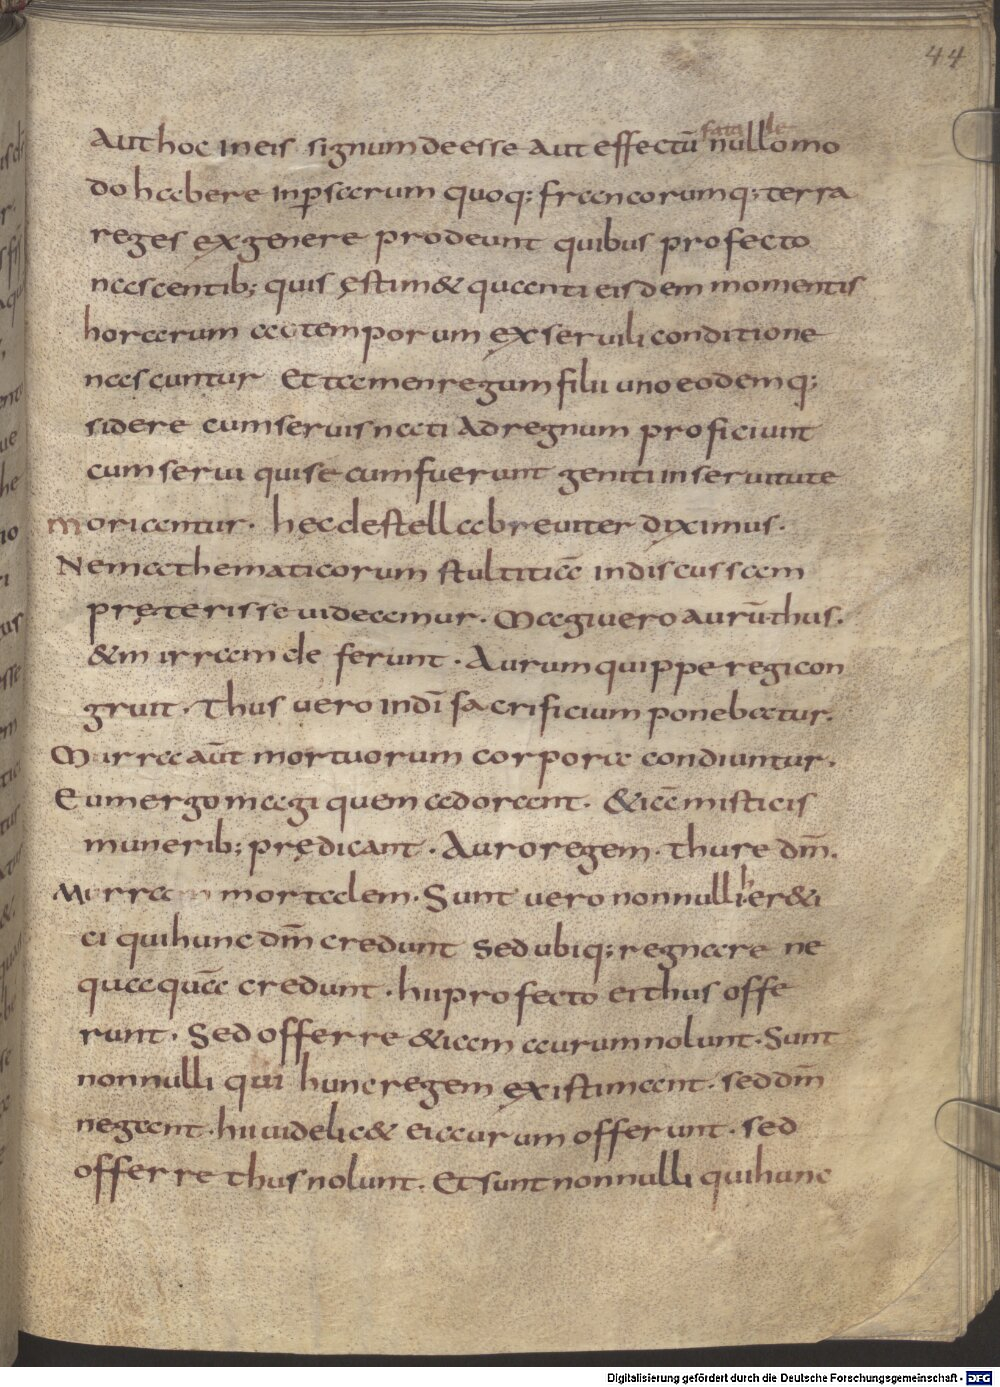 44
Aut hoc in eis signum deesse aut effectū nullomo
fatale
do habere in p̱sarum quoq; francorumq; terra
reges ex genere prodeunt quibus profecto
nascentib; quis ęstim& quanti eisdem momentis
horarum ac temporum ex seruili conditione
nascuntur Et tamen regum filii uno eodemq;
sidere cum seruis nati Ad regnum proficiunt
cum serui qui secum fuerunt geniti in seruitute
moriantur. hec de stella breuiter diximus.
Ne mathematicorum stultitiā indiscussam
pręterisse uideamur. Magi uero aurū. thus.
& mirram deferunt. Aurum quippe regi con
gruit. Thus uero in dī sacrificium ponebatur.
Murra aūt mortuorum corpora condiuntur.
Eum ergo magi quem adorant. &iā misticis
munerib; prędicant. Auro regem. thure dm̄.
Murra mortalem. Sunt uero nonnulli her&i
ci qui hunc dm̄ credunt sed ubiq; regnare ne
quaquā credunt. hii profecto ei thus offe
runt. Sed offerre &iam aurum nolunt. Sunt
nonnulli qui hunc regem existimant. sed dm̄
negant. hii uidelic& ei aurum offerunt. sed
offerre thus nolunt. Et sunt nonnulli qui hunc
Digitalisierung gefördert durch die Deutsche Forschungsgemeinschaft - DFG